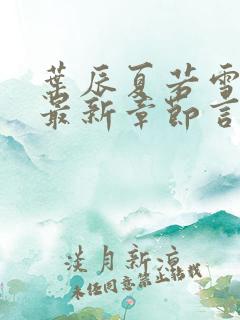 葉辰夏若雪
最新章節言
淡月新涼
未经同意禁止转载